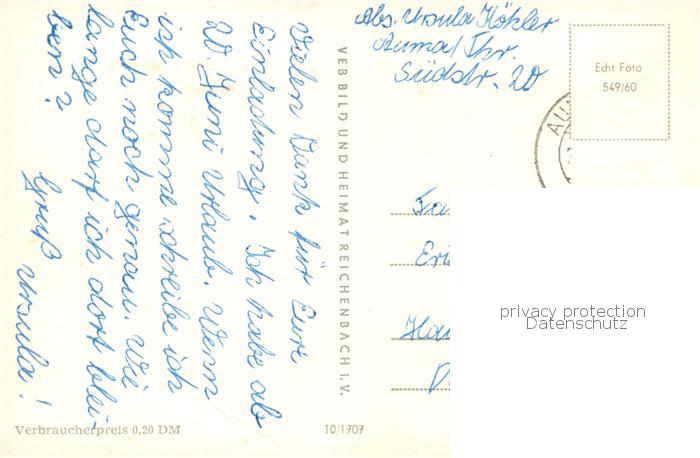 Abs. Ursula Köhler
Auma/Thr.
Südstr. 20
Echt Foto
549/60
Vielen Dank für Eure
Einladung. Ich habe ab
20. Juni Urlaub. Wenn
ich komme schreibe ich
Euch noch genau. Wie
lange darf ich dort blei-
ben?
Gruß Ursula!
VEB BILD UND HEIMAT REICHENBACH I.V.
privacy protection
Datenschutz
Verbraucherpreis 0,20 DM
10/1707